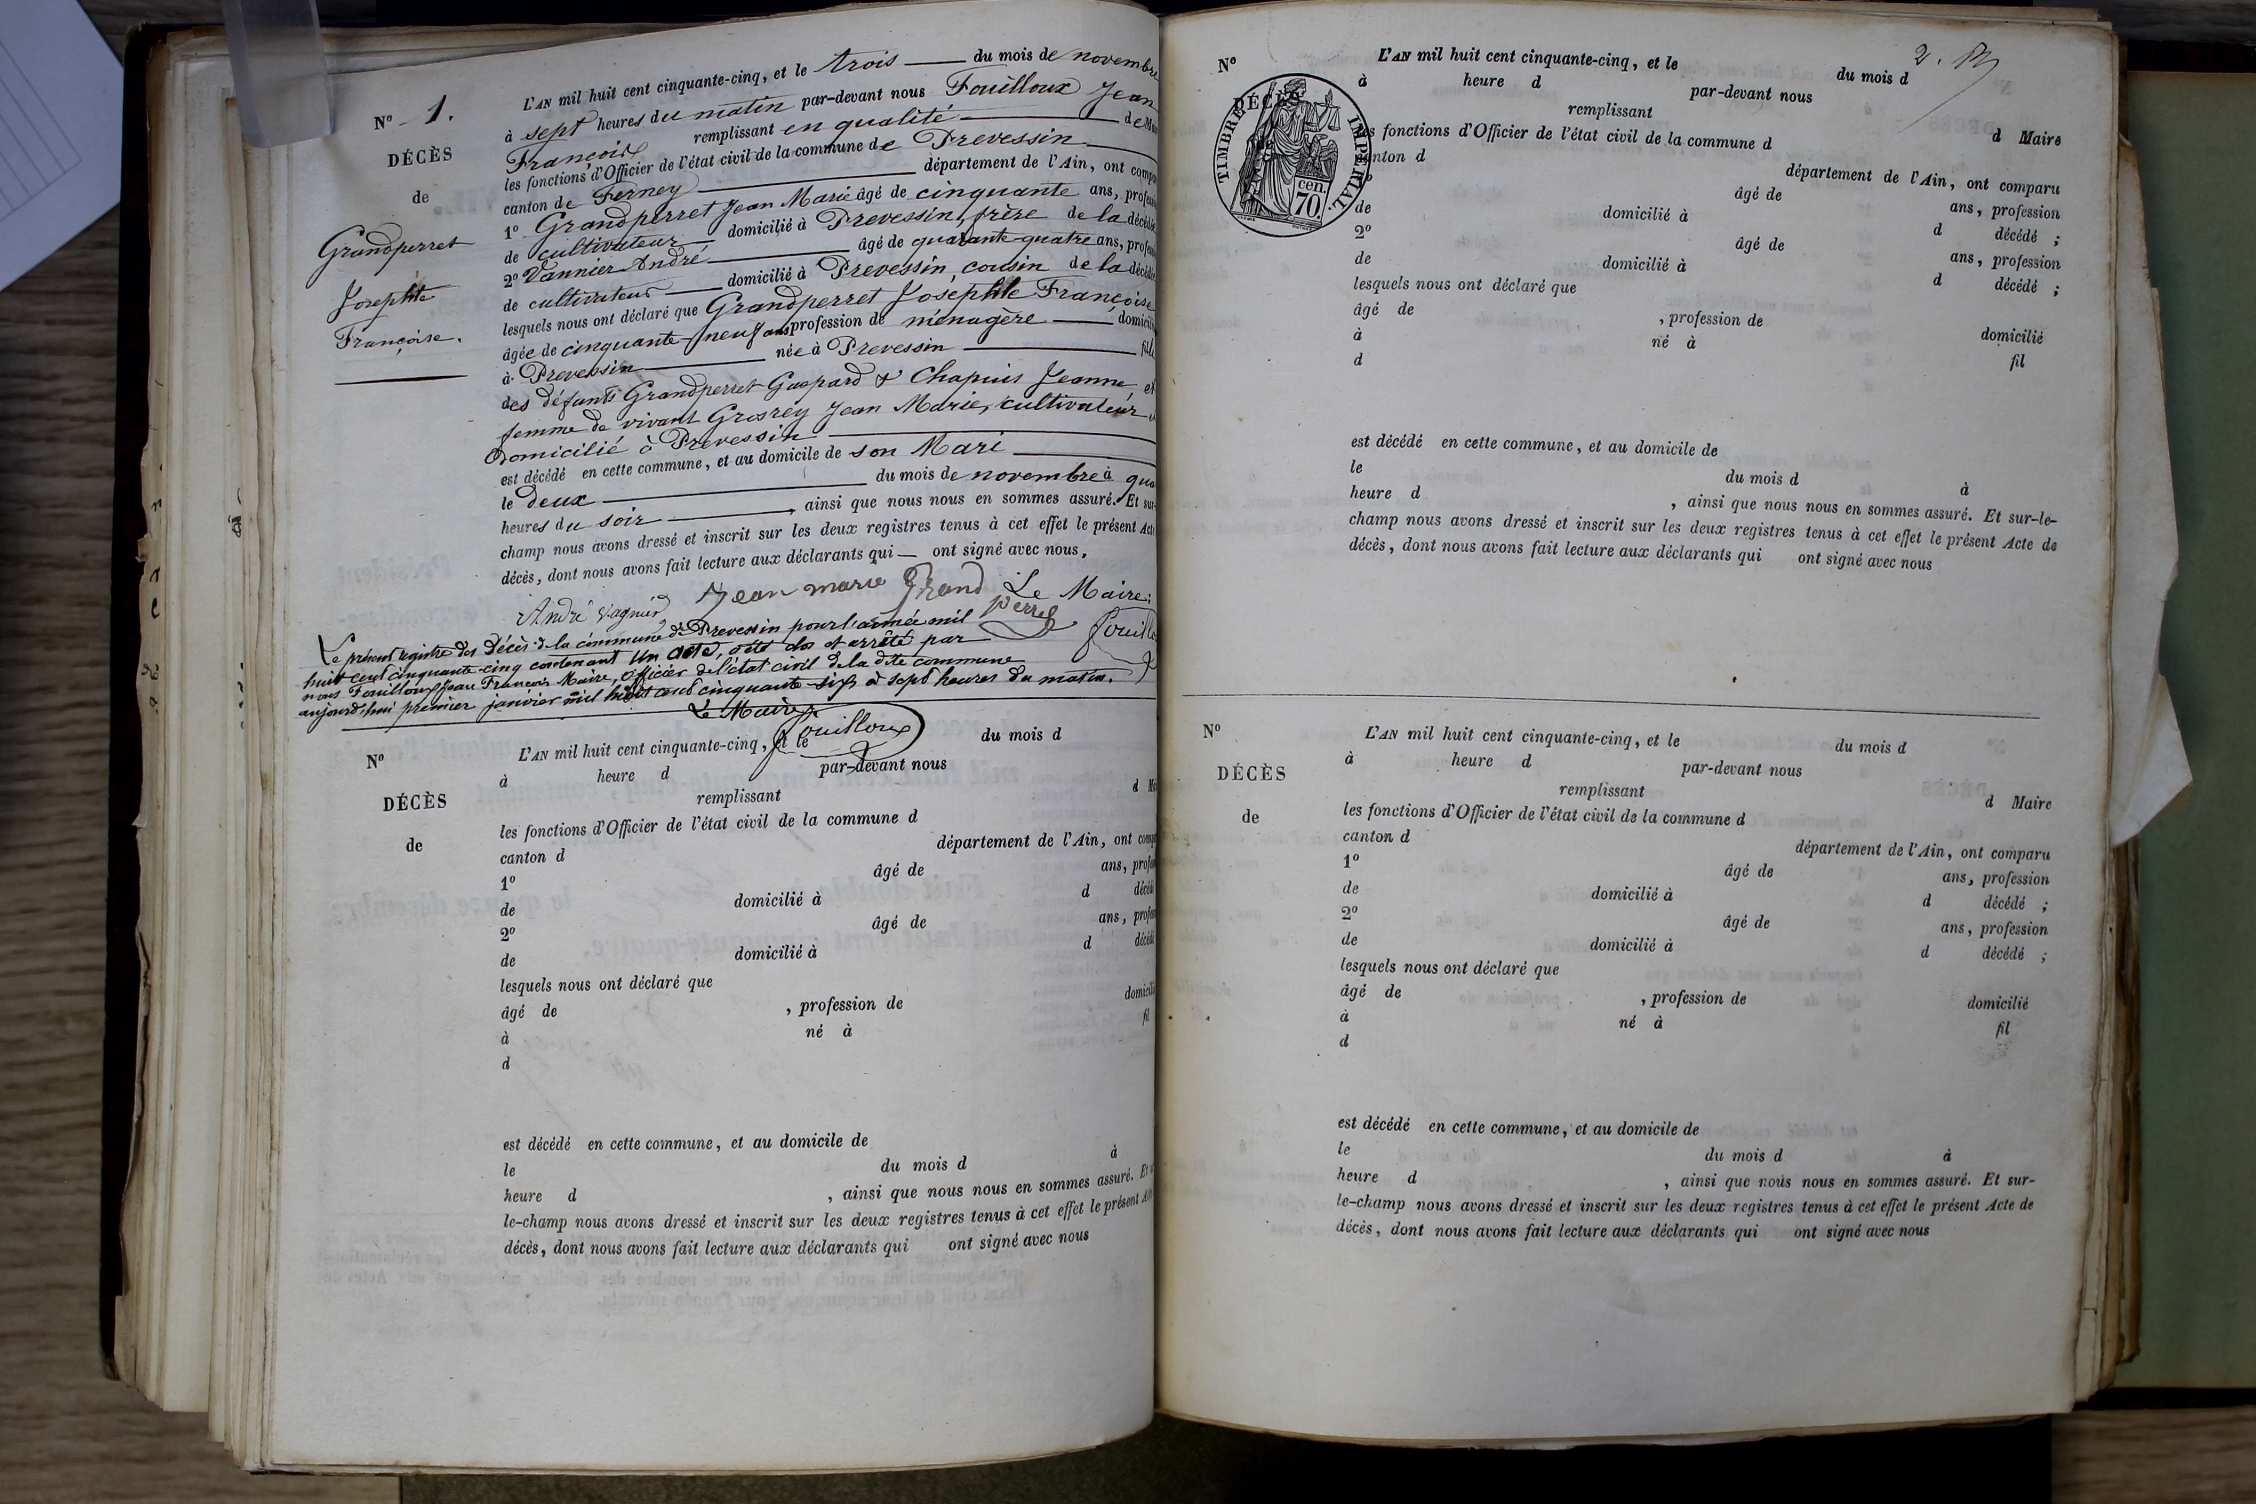 L'AN mil huit cent cinquante-cinq, et le trois du mois de novembre
à sept heures du matin par-devant nous Fouilloux Jean
François remplissant en qualité de
les fonctions d'Officier de l'état civil de la commune de Prevessin
canton de Ferney département de l'Ain, ont
1º Grandperret Jean Marie âgé de cinquante ans,
de cultivateur domicilié à Prevessin, frère de la
2º Vannier André âgé de quarante-quatre ans,
de cultivateur domicilié à Prevessin, cousin de la
lesquels nous ont déclaré que Grandperret Josephte Françoise
âgée de cinquante-neuf ans profession de ménagère
à Prevessin née à Prevessin
des défunts Grandperret Gaspard & Chapuis Jeanne et
femme de vivant Grosrey Jean Marie, cultivateur
domicilié à Prevessin
est décédé en cette commune, et au domicile de son Mari
le deux du mois de novembre à
heures du soir, ainsi que nous nous en sommes assuré. Et sur-
champ nous avons dressé et inscrit sur les deux registres tenus à cet effet le présent
décès, dont nous avons fait lecture aux déclarants qui — ont signé avec nous.
Nº 1.
DÉCÈS
de
Grandperret
Josephte
Françoise.
André Vagnier Jean marie Grand Le Maire:
perret
Le présent registre des Décès de la commune de Prevessin pour l'année mil
huit cent cinquante-cinq contenant un acte, a été clos et arrêté par
nous Fouilloux Jean François Maire, officier de l'état civil de la dite commune
aujourd'hui premier janvier mil huit cent cinquante six à sept heures du matin.
Le Maire
Fouilloux
Nº
DÉCÈS
de
L'AN mil huit cent cinquante-cinq, et le du mois d
à heure d par-devant nous
remplissant d
les fonctions d'Officier de l'état civil de la commune d
canton d département de l'Ain, ont
1º âgé de ans,
de domicilié à d
2º âgé de ans,
de domicilié à d
lesquels nous ont déclaré que
âgé de , profession de
à né à fil
d
est décédé en cette commune, et au domicile de
le du mois d à
heure d , ainsi que nous nous en sommes assuré. Et
le-champ nous avons dressé et inscrit sur les deux registres tenus à cet effet le présent
décès, dont nous avons fait lecture aux déclarants qui ont signé avec nous
2.
Nº
TIMBRE IMPÉRIAL
70 cen.
DÉCÈS
L'AN mil huit cent cinquante-cinq, et le du mois d
à heure d par-devant nous
remplissant d Maire
les fonctions d'Officier de l'état civil de la commune d
canton d département de l'Ain, ont comparu
âgé de ans, profession
de domicilié à d décédé ;
2º âgé de ans, profession
de domicilié à d décédé ;
lesquels nous ont déclaré que
âgé de , profession de domicilié
à né à fil
d
est décédé en cette commune, et au domicile de
le du mois d à
heure d , ainsi que nous nous en sommes assuré. Et sur-le-
champ nous avons dressé et inscrit sur les deux registres tenus à cet effet le présent Acte de
décès, dont nous avons fait lecture aux déclarants qui ont signé avec nous
Nº
DÉCÈS
de
L'AN mil huit cent cinquante-cinq, et le du mois d
à heure d par-devant nous
remplissant d Maire
les fonctions d'Officier de l'état civil de la commune d
canton d département de l'Ain, ont comparu
1º âgé de ans, profession
de domicilié à d décédé ;
2º âgé de ans, profession
de domicilié à d décédé ;
lesquels nous ont déclaré que
âgé de , profession de domicilié
à né à fil
d
est décédé en cette commune, et au domicile de
le du mois d à
heure d , ainsi que nous nous en sommes assuré. Et sur-
le-champ nous avons dressé et inscrit sur les deux registres tenus à cet effet le présent Acte de
décès, dont nous avons fait lecture aux déclarants qui ont signé avec nous